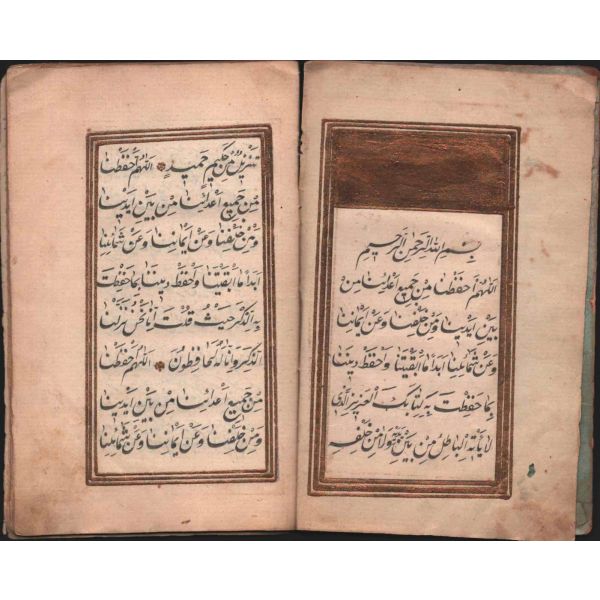 بسم الله الرحمن الرحيم
اللهم احفظنا من جميع اعدائنا من
بين ايدينا ومن خلفنا وعن ايماننا
وعن شمايلنا ابدا ما ابقيتنا واحفظ ديننا
بما حفظت به كتابك العزيز الذى
لا يأته الباطل من بين يديه ولا من خلفه
تنزيل من حكيم حميد اللهم احفظنا
من جميع اعدائنا من بين ايدينا
ومن خلفنا وعن ايماننا وعن شمايلنا
ابدا ما ابقيتنا واحفظ ديننا بما حفظت
به الذكر حيث قلت انا نحن نزلنا
الذكر وانا له لحافظون اللهم احفظنا
من جميع اعدائنا من بين ايدينا
ومن خلفنا وعن ايماننا وعن شمايلنا